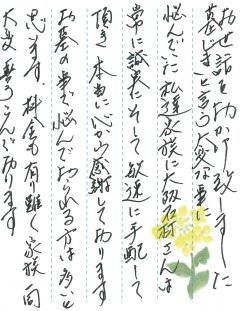 お世話を掛り致しました
墓じまいと言う大変な事に
悩んでいた私達家族に大阪石材さんは
常に誠実にそして敏速に手配して
頂き本当に心から感謝して居ります
お墓の事で悩んで居られる方は多いと
思います、料金も有り難く家族一同
大変喜こんで居ります